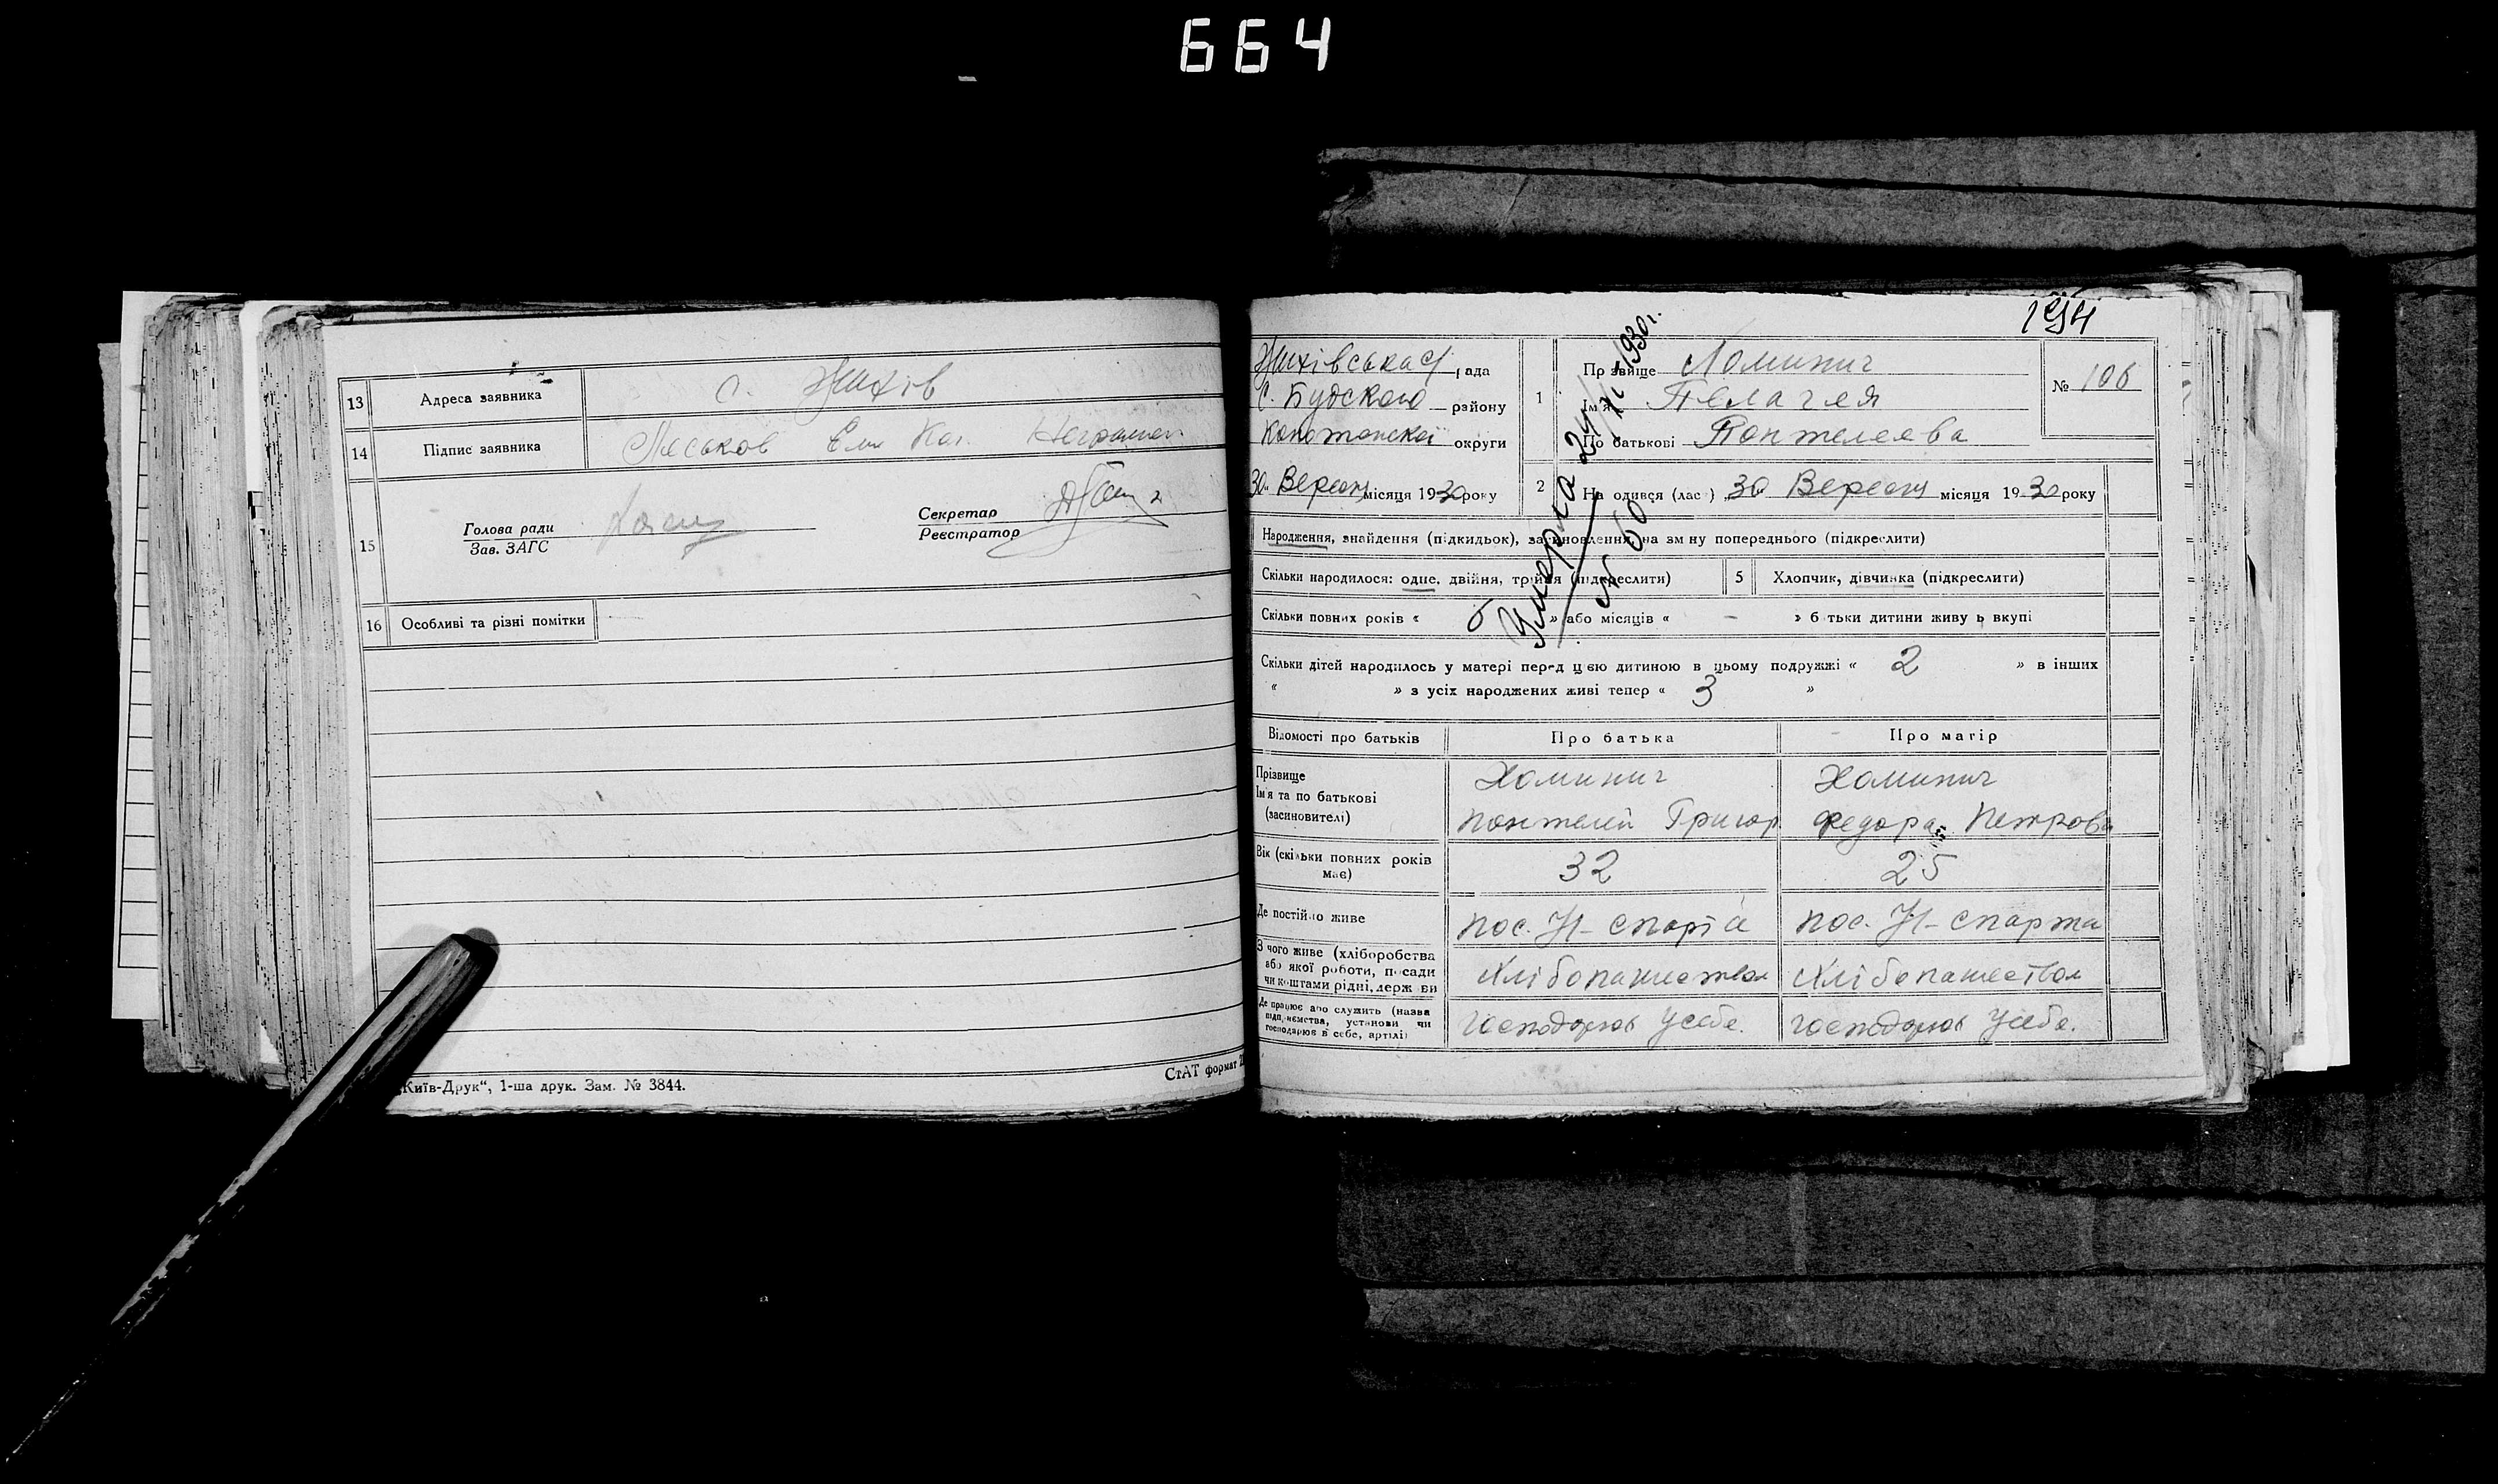 664
13 Адреса заявника с. Жихів
14 Підпис заявника Неграмот
15 Голова ради
Зав. ЗАГС
Секретар
Реєстратор
16 Особливі та різні помітки
„Київ-Друк“, 1-ша друк. Зам. № 3844.
СтАТ формат
194
Жихівська с/рада
С. Будского району
Конотопскої округи
30 Вересня місяця 1930 року
1 Прізвище Хоминич
Ім'я Пелагея
По батькові Понтелеева
№ 106
2 Народився (лась) 30 Вересня місяця 1930 року
Умерла 24/XI 1930 г.
№ 60
Народження, знайдення (підкидьок), засиновлення, на зміну попереднього (підкреслити)
Скільки народилося: одне, двійня, трійня (підкреслити) 5 Хлопчик, дівчинка (підкреслити)
Скільки повних років « 6 » або місяців « – » батьки дитини живуть вкупі
Скільки дітей народилось у матері перед цією дитиною в цьому подружжі « 2 » в інших
« » з усіх народжених живі тепер « 3 »
Відомості про батьків Про батька Про матір
Прізвище Хоминич Хоминич
Ім'я та по батькові
(засиновителі) Понтелей Григор. Федора Петрова
Вік (скільки повних років має) 32 25
Де постійно живе пос. Н-Спарта пос. Н-Спарта
З чого живе (хліборобства або якої роботи, посади чи коштами рідні, держави Хлібопашеством Хлібопашеством
Де працює або служить (назва підприємства, установи чи господарює в себе, артілі) господарює у себе. господарює у себе.